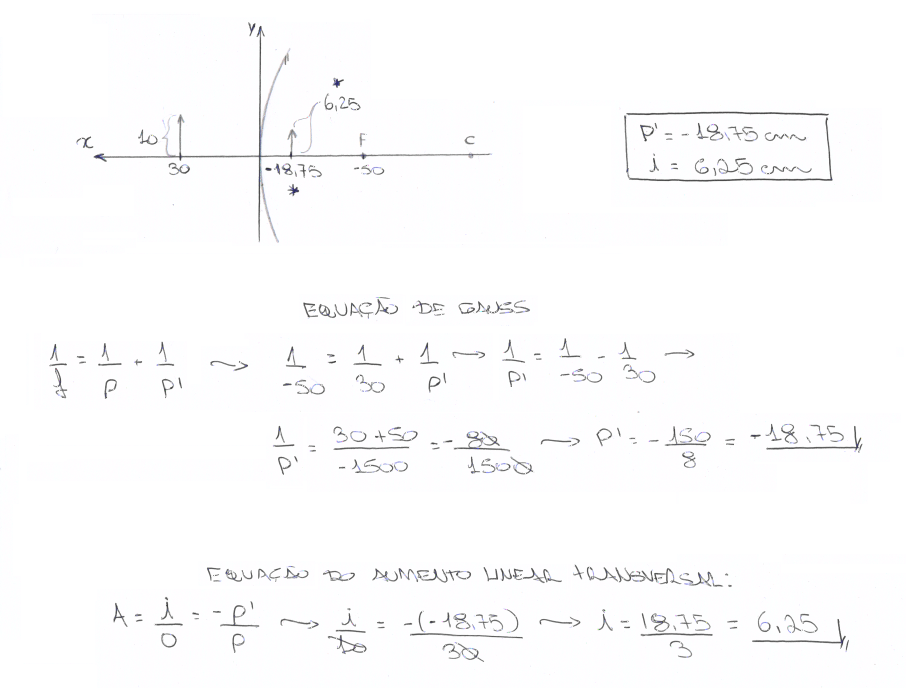 y
*
6,25
10 {
x
F
C
30
-18,75
-50
*
P' = -18,75 cm
i = 6,25 cm
EQUAÇÃO DE GAUSS
1/f = 1/P + 1/P' ~> 1/-50 = 1/30 + 1/P' ~> 1/P' = 1/-50 - 1/30 →
1/P' = 30+50/-1500 = - 80/1500 ~> P' = - 150/8 = -18,75
EQUAÇÃO DO AUMENTO LINEAR TRANSVERSAL:
A = i/O = -P'/P ~> i/10 = -(-18,75)/30 ~> i = 18,75/3 = 6,25